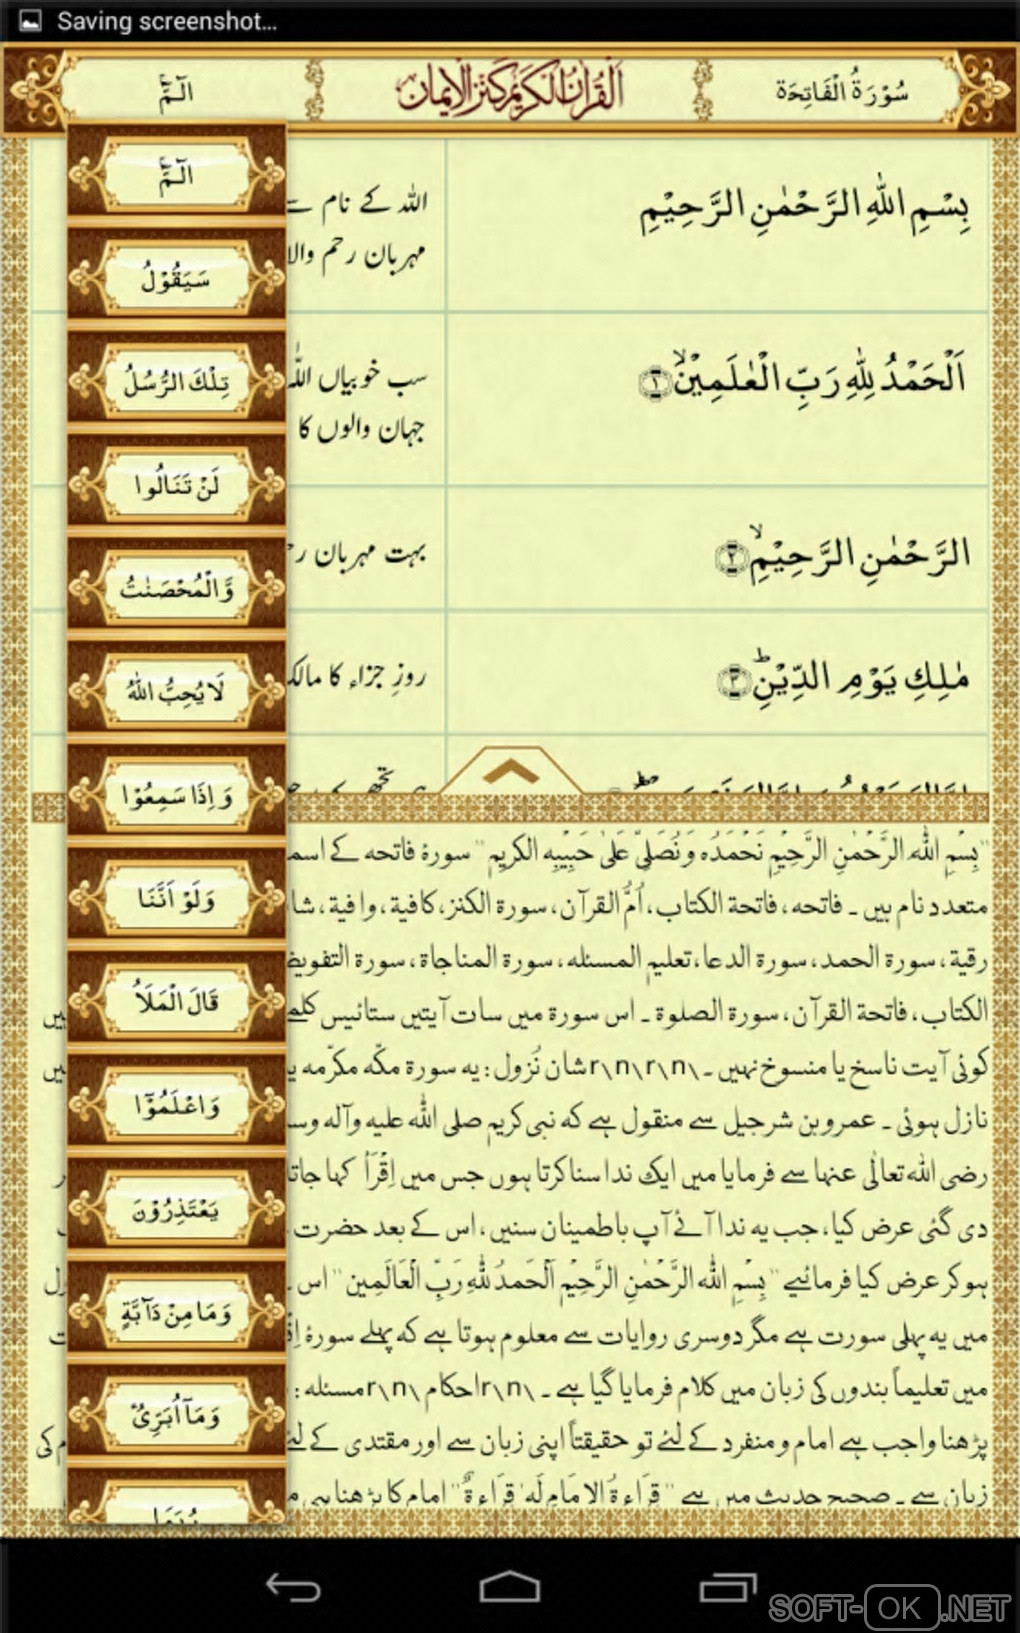 Saving screenshot...
سُوْرَۃُ الْفَاتِحَة
اَلْقُرْاٰنُ الْكَرِيْم كَنْزُ الْاِيْمَان
الٓـمّٓ
الٓـمّٓ
سَيَقُوْلُ
تِلْكَ الرُّسُلُ
لَنْ تَنَالُوا
وَّالْمُحْصَنٰتُ
لَا يُحِبُّ اللّٰهُ
وَ اِذَا سَمِعُوْا
وَلَوْ اَنَّنَا
قَالَ الْمَلَاُ
وَاعْلَمُوْٓا
يَعْتَذِرُوْنَ
وَ مَا مِنْ دَآبَّةٍ
وَ مَاۤ اُبَرِّئُ
رُبَمَا
بِسْمِ اللّٰهِ الرَّحْمٰنِ الرَّحِيْمِ
اللہ کے نام سے
مہربان رحم والا
اَلْحَمْدُ لِلّٰهِ رَبِّ الْعٰلَمِيْنَۙ ۱
سب خوبیاں اللہ
جہان والوں کا
الرَّحْمٰنِ الرَّحِيْمِۙ ۲
بہت مہربان
مٰلِكِ يَوْمِ الدِّيْنِؕ ۳
روزِ جزاء کا مالک
"بِسْمِ اللّٰهِ الرَّحْمٰنِ الرَّحِيْمِ نَحْمَدُه وَ نُصَلِّیْ عَلٰی حَبِيْبِهِ الْكَرِيْمِ" سورۂ فاتحہ کے
متعدد نام ہیں ۔ فاتحہ، فاتحۃ الکتاب، اُمُّ القرآن، سورۃ الکنز، کافیۃ، وافیۃ،
رقیۃ، سورۃ الحمد، سورۃ الدعا، تعلیم المسئلہ، سورۃ المناجاۃ، سورۃ
الکتاب، فاتحۃ القرآن، سورۃ الصلوۃ ۔ اس سورۃ میں سات آیتیں ستائیس کلمے
کوئی آیت ناسخ یا منسوخ نہیں ۔ \r\n\r\nشان نُزول : یہ سورۃ مکّہ مکرّمہ
نازل ہوئی ۔ عمرو بن شرجیل سے منقول ہے کہ نبی کریم صلی اللہ علیہ وآلہ
رضی اللہ تعالٰی عنہا سے فرمایا میں ایک ندا سنا کرتا ہوں جس میں اِقْرَأْ کہا
دی گئی عرض کیا، جب یہ ندا آئے آپ باطمینان سنیں، اس کے بعد حضرت
ہو کر عرض کیا فرمائیے "بِسْمِ اللّٰهِ الرَّحْمٰنِ الرَّحِيْمِ اَلْحَمْدُ لِلّٰهِ رَبِّ الْعَالَمِيْنَ" اس
میں یہ پہلی سورت ہے مگر دوسری روایات سے معلوم ہوتا ہے کہ پہلے سورۂ
میں تعلیماً بندوں کی زبان میں کلام فرمایا گیا ہے ۔ \r\nاحکام \r\nمسئلہ :
پڑھنا واجب ہے امام و منفرد کے لئے تو حقیقتاً اپنی زبان سے اور مقتدی کے لئے
زبان سے ۔ صحیح حدیث میں ہے "قِرَاءَةُ الْاِمَامِ لَه قِرَاءَةٌ" امام کا پڑھنا ہی
SOFT-OK.NET